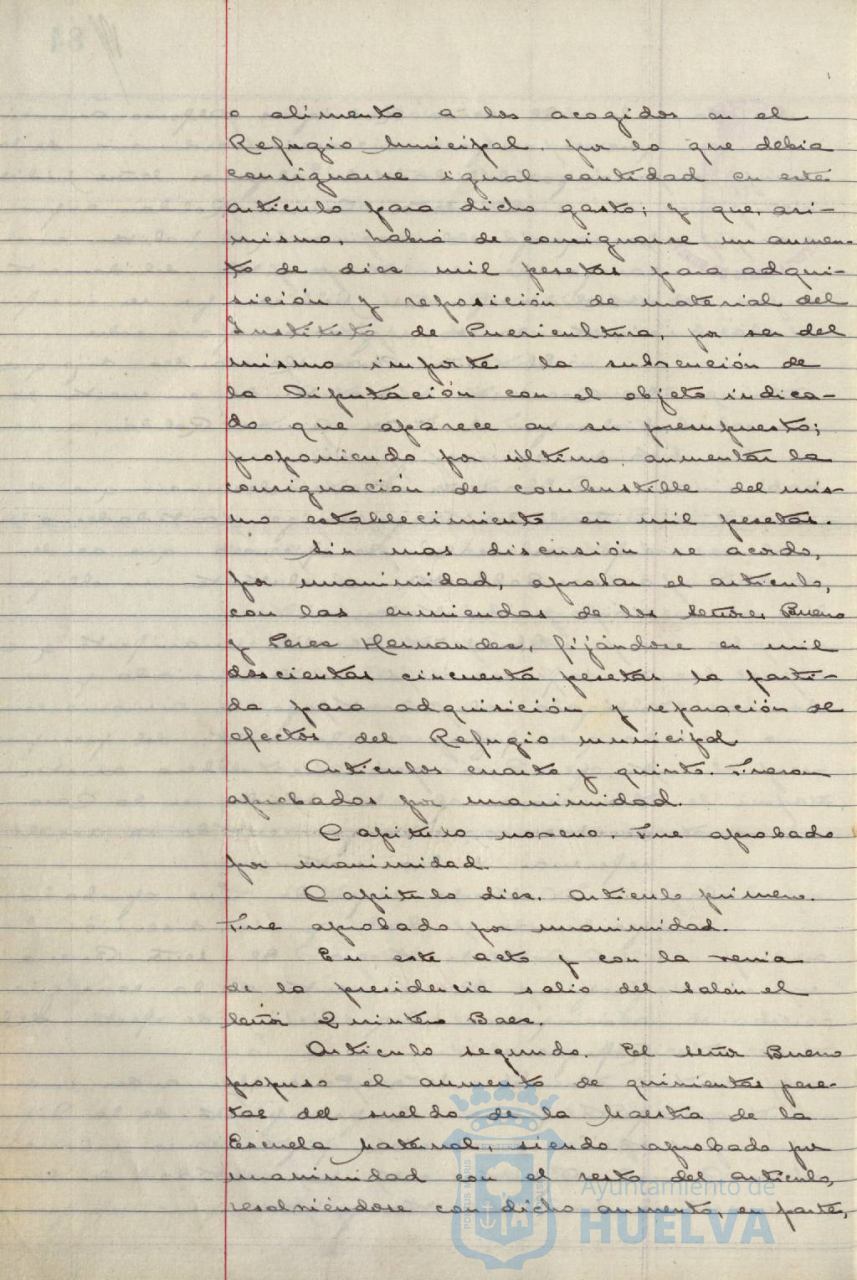 o alimento a los acogidos en el
Refugio Municipal, por lo que debia
consignarse igual cantidad en este
articulo para dicho gasto; y que, asi-
mismo, habia de consignarse un aumen-
to de dies mil pesetas para adqui-
sición y reposición de material del
Instituto de Puericultura, por ser del
mismo importe la subvención de
la Diputación con el objeto indica-
do que aparece en su presupuesto;
proponiendo por ultimo, aumentar la
consignación de combustible del mis-
mo establecimiento en mil pesetas.
Sin mas discusión se acordo,
por unanimidad, aprobar el articulo,
con las enmiendas de los señores Bueno
y Peres Hernandes, fijándose en mil
doscientas cincuenta pesetas la parti-
da para adquisición y reparación de
efectos del Refugio municipal
Articulos cuarto y quinto. Fueron
aprobados por unanimidad.
Capitulo noveno. Fue aprobado
por unanimidad.
Capitulo dies. Articulo primero.
Fue aprobado por unanimidad.
En este acto y con la venia
de la presidencia salio del salon el
señor Quintero Baes.
Articulo segundo. El señor Bueno
propuso el aumento de quinientas pese-
tas del sueldo de la Maestra de la
Escuela Maternal, siendo aprobado por
unanimidad con el resto del articulo,
resolviéndose con dicho aumento, en parte,
Ayuntamiento de
HUELVA